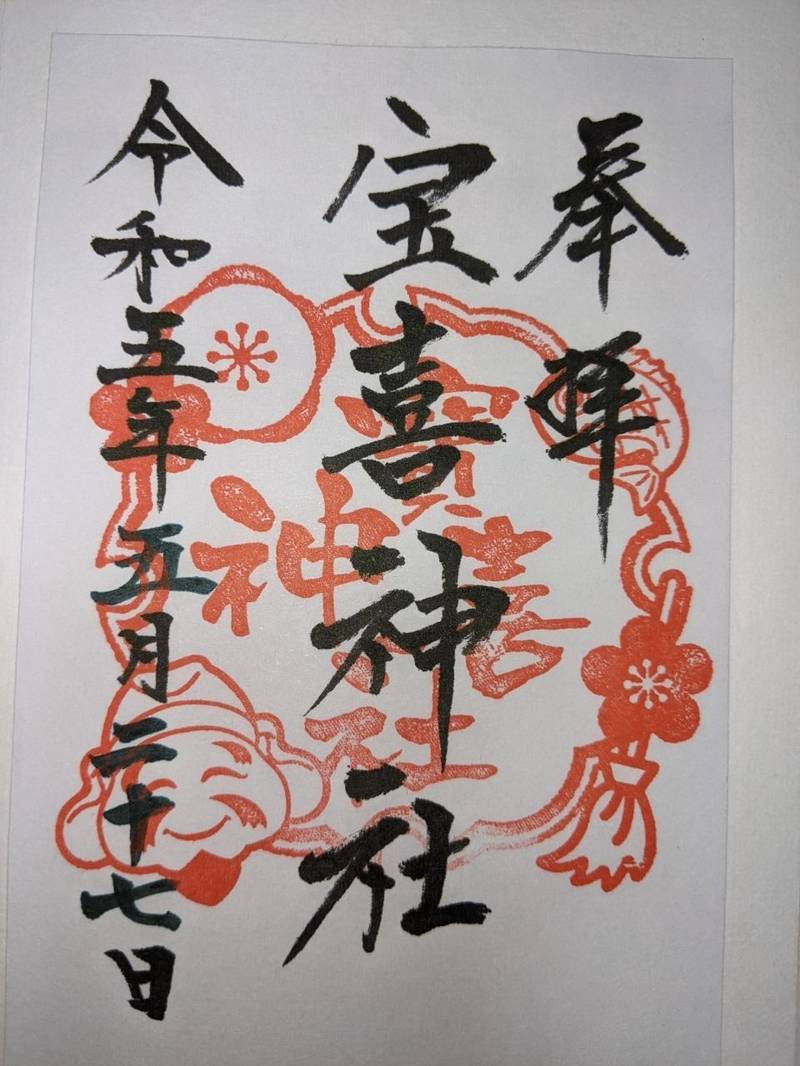 奉拝
宝喜神社
令和五年五月二十七日
寳喜神社